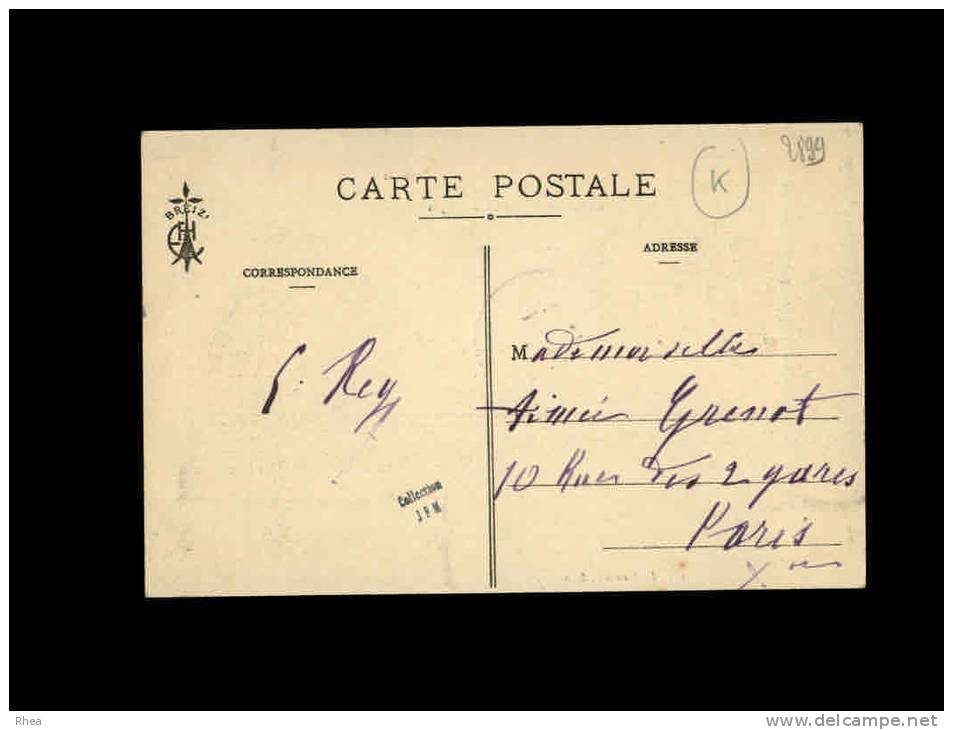 2899
K
CARTE POSTALE
BREIZ
CORRESPONDANCE
ADRESSE
Mademoiselle
Aimée Grenot
10 Rue des 2 gares
Paris
X
Rey
Collection
J P M
Rhea
www.delcampe.net